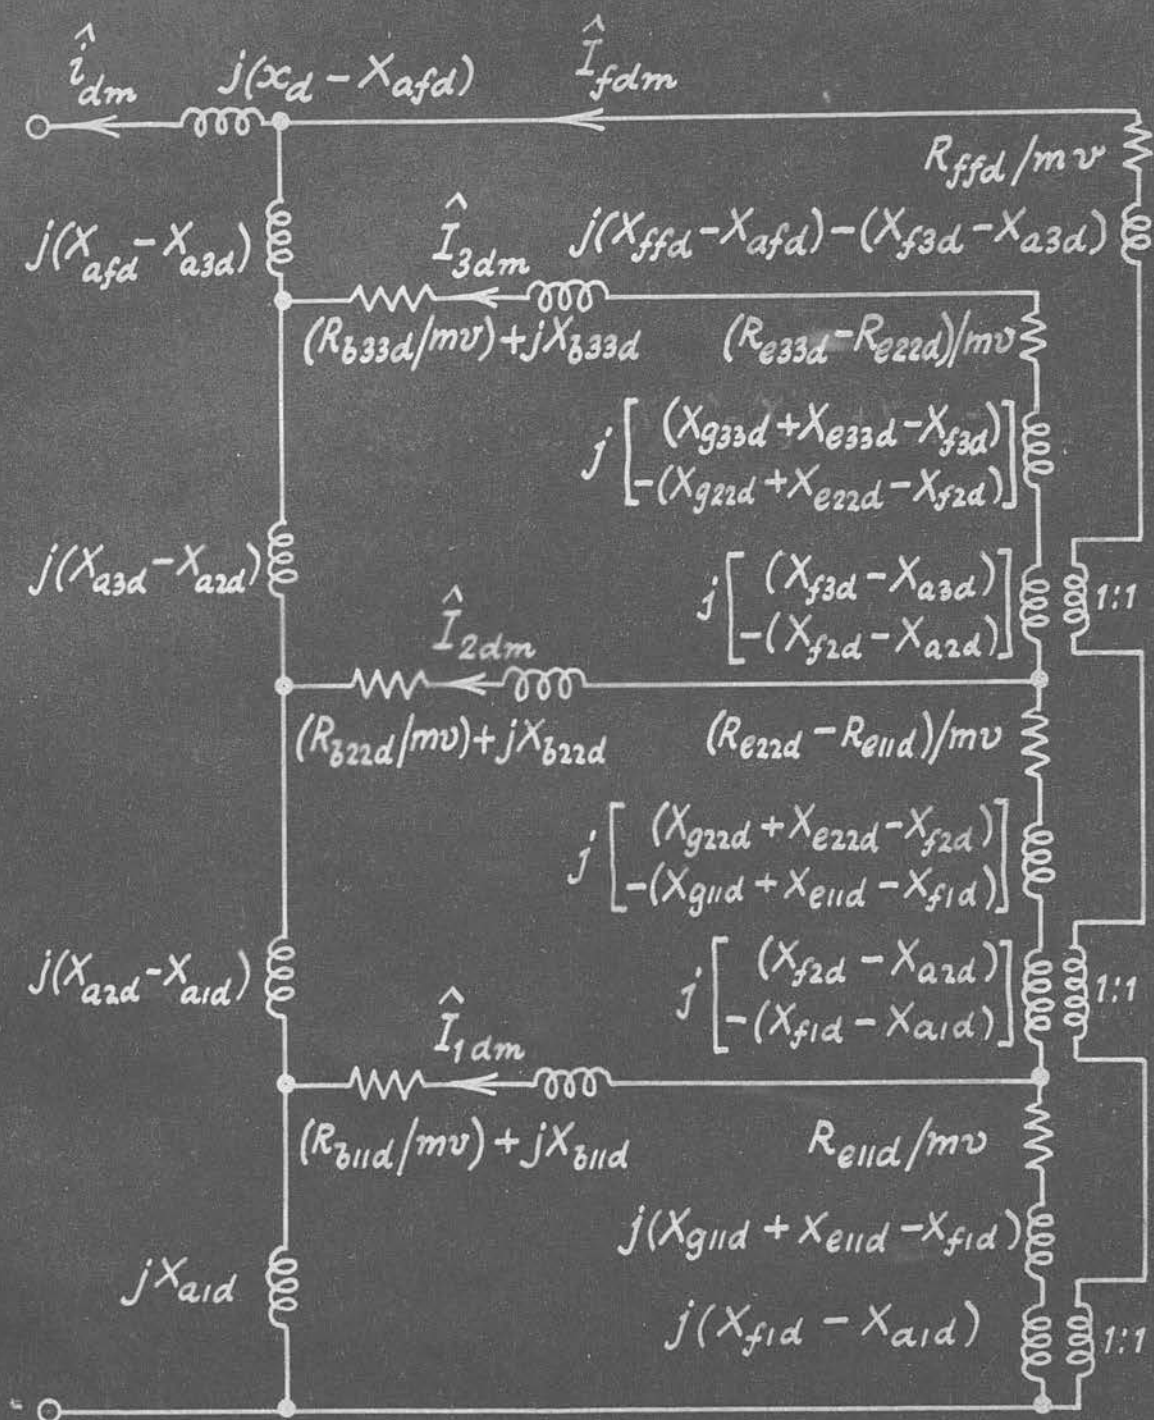 î_dm
j(x_d − X_afd)
Î_fdm
R_ffd/mν
j(X_afd − X_a3d)
Î_3dm
j(X_ffd − X_afd) − (X_f3d − X_a3d)
(R_b33d/mν) + jX_b33d
(R_e33d − R_e22d)/mν
j[(X_g33d + X_e33d − X_f3d)
−(X_g22d + X_e22d − X_f2d)]
j(X_a3d − X_a2d)
j[(X_f3d − X_a3d)
−(X_f2d − X_a2d)]
1:1
Î_2dm
(R_b22d/mν) + jX_b22d
(R_e22d − R_e11d)/mν
j[(X_g22d + X_e22d − X_f2d)
−(X_g11d + X_e11d − X_f1d)]
j(X_a2d − X_a1d)
j[(X_f2d − X_a2d)
−(X_f1d − X_a1d)]
1:1
Î_1dm
(R_b11d/mν) + jX_b11d
R_e11d/mν
j(X_g11d + X_e11d − X_f1d)
jX_a1d
j(X_f1d − X_a1d)
1:1